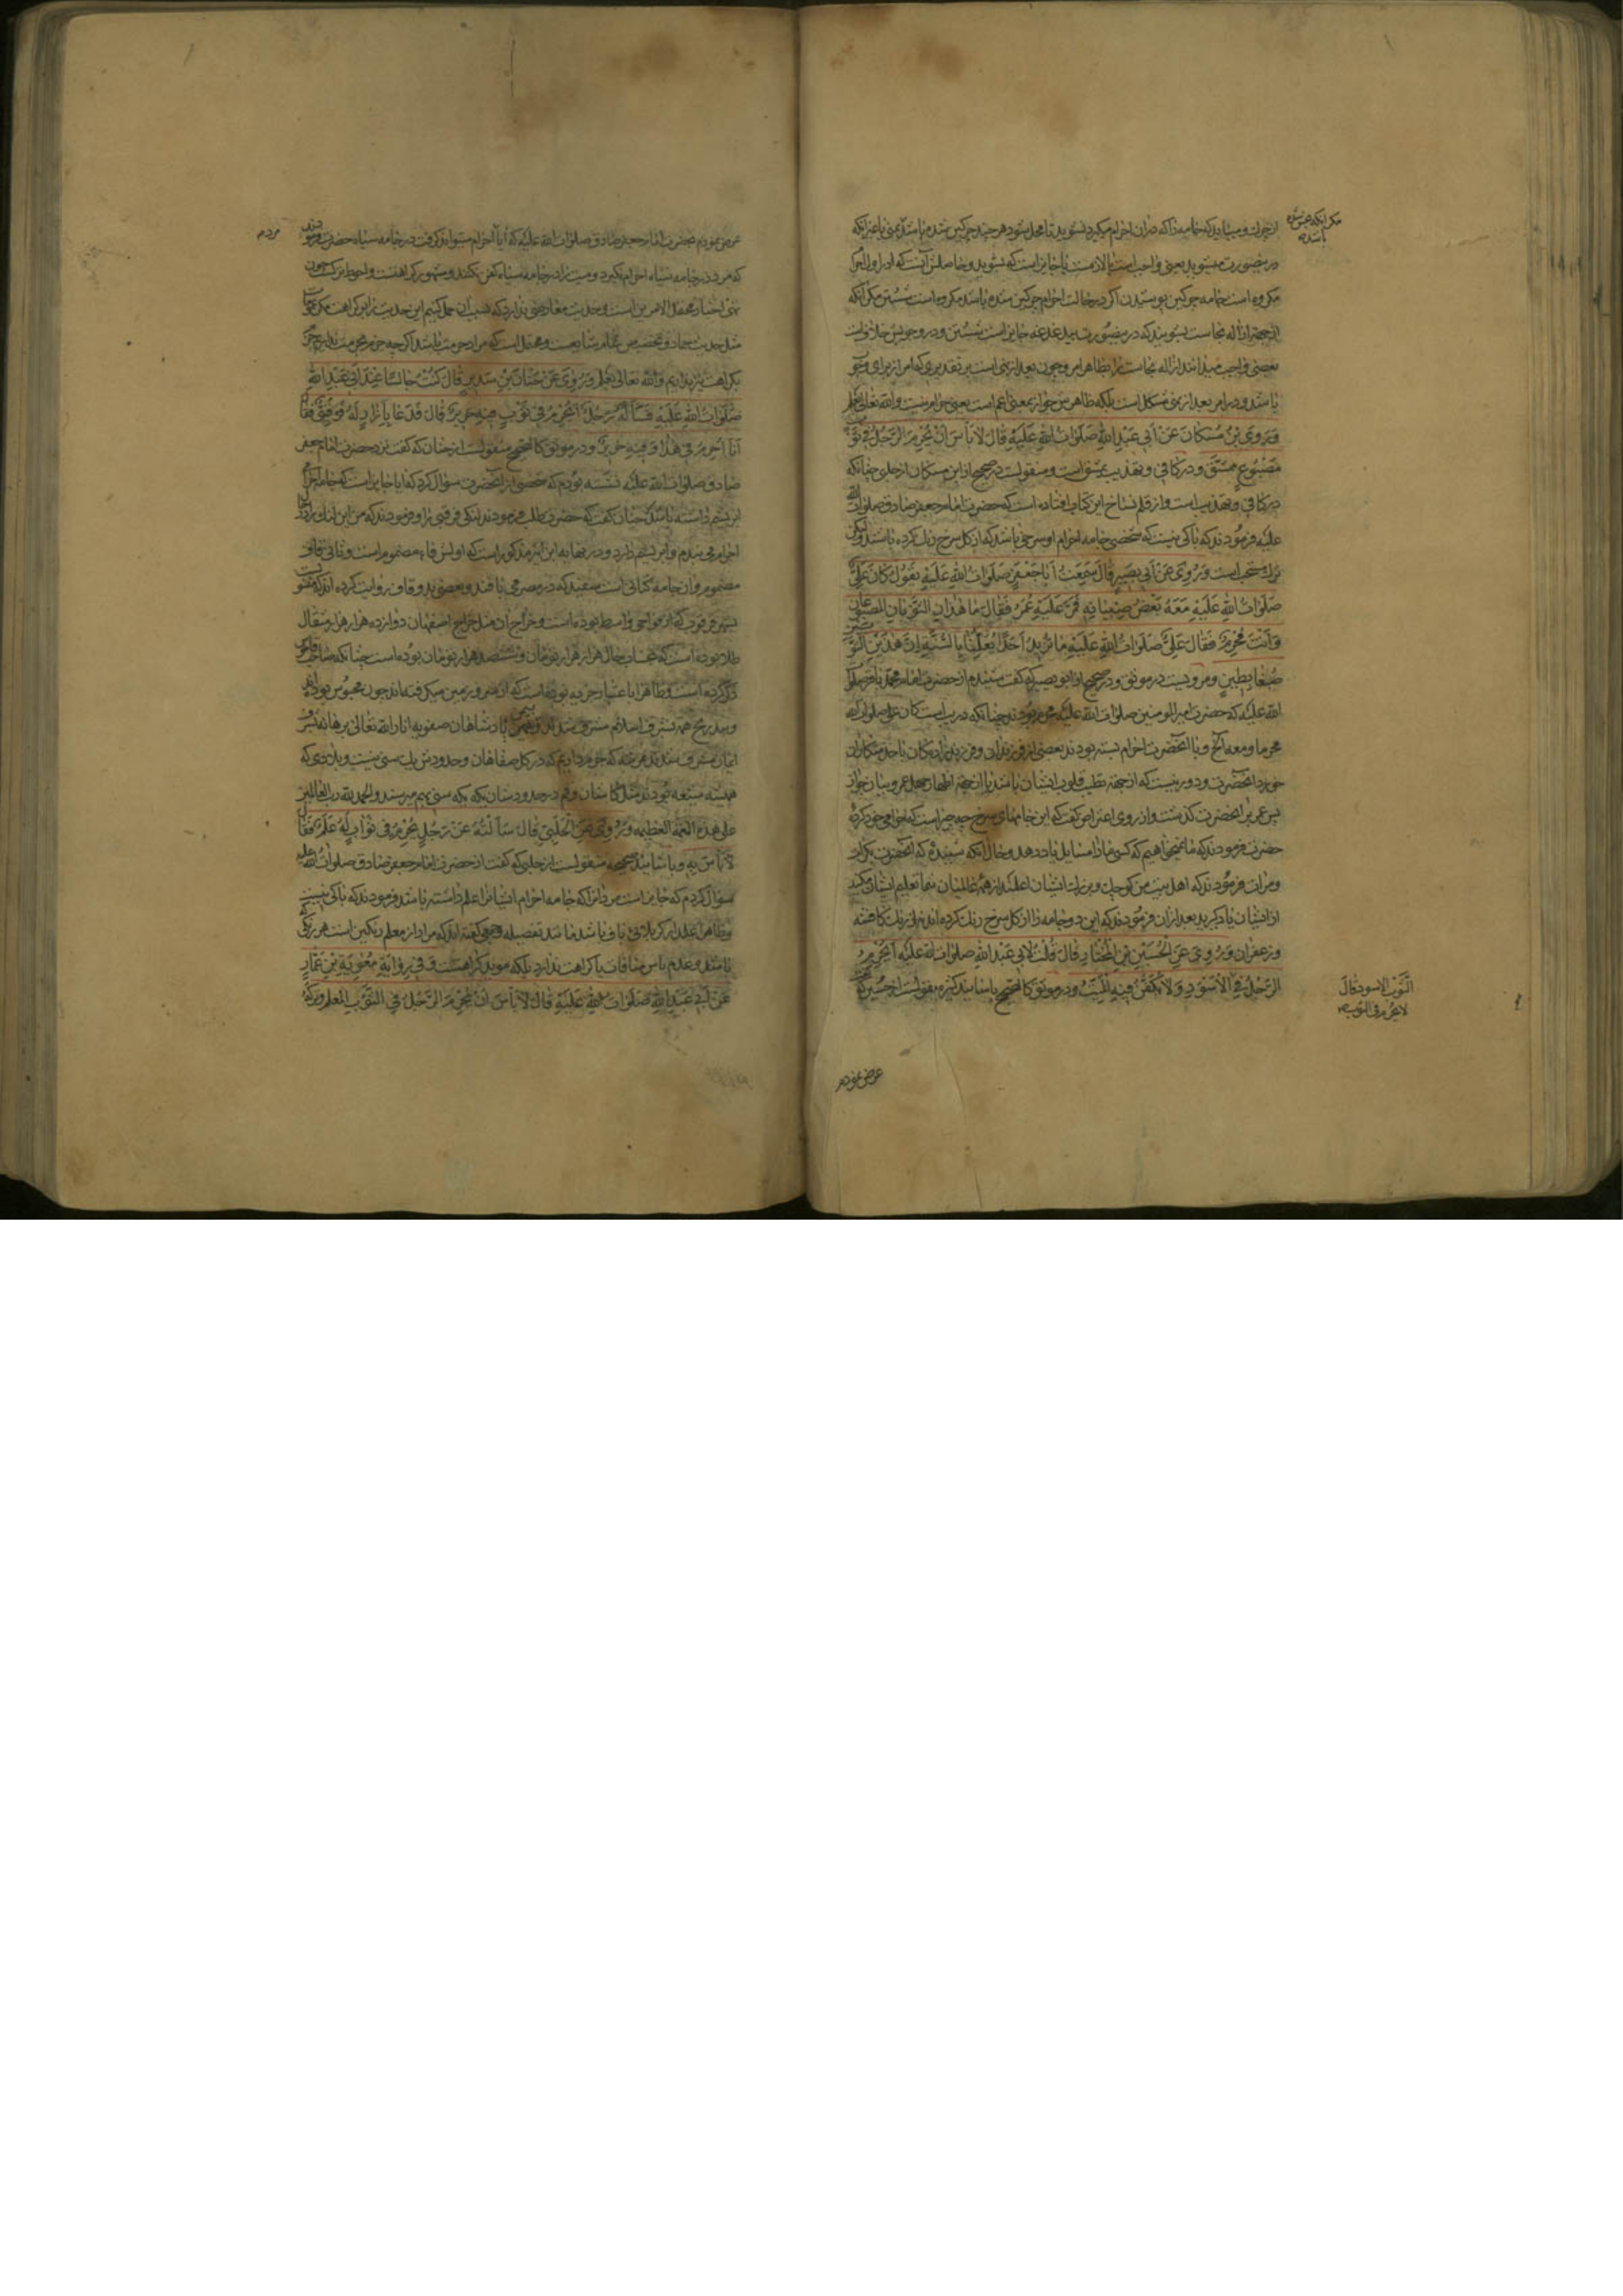 از چرك و میباید که جامه را که در ان احرام میگیرد بشوید تا محل شود هر چند چرکین شده باشد یعنی با عزانکه
مکر انکه نجس شده باشد
در نصورت میشوید یعنی واجبست یا لازمست یا جایز است که بشوید و حاصلش آنست که اول احرام
مکروه است جامه چرکین پوشیدن اکر در حالت احرام چرکین شده باشد مکروه است شستن مکر انکه
از جهة ازاله نجاست بشویند که در نصورت بیدغدغه جایز است شستن و در وجوبش خلافست
بعضی واجب میدانند ازاله نجاست را بظاهر امر و چون بعد از نهی است بر تقدیری که امر از برای وجوب
باشد و در امر بعد از نهی مشکل است بلکه ظاهرش جواز بمعنی اعم است یعنی حرام نیست و الله تعالی یعلم
وَرَوَی بْنُ مُسْکَانَ عَنْ أَبِي عَبْدِ اللهِ صَلَوَاتُ اللهِ عَلَيْهِ قَالَ لَا بَأْسَ أَنْ يُحْرِمَ الرَّجُلُ فِي ثَوْبٍ
مَصْبُوغٍ بِمِشْقٍ و در کافی و تهذیب بمشق است و منقولست در صحیح از ابن مسکان از حلبی چنانکه
در کافی و تهذیب است و از قلم نساخ این کتاب افتاده است که حضرت امام جعفر صادق صلوات الله
علیه فرمودند که باکی نیست که شخصی جامه احرام او سرخی باشد که از کل سرخ رنك کرده باشند ولیکن
ترك مستحب است وَرُوِيَ عَنْ أَبِي بَصِيرٍ قَالَ سَمِعْتُ أَبَا جَعْفَرٍ صَلَوَاتُ اللهِ عَلَيْهِ يَقُولُ كَانَ عَلِيٌّ
صَلَوَاتُ اللهِ عَلَيْهِ مَعَهُ بَعْضُ صِبْيَانِهِ فَمَرَّ عَلَيْهِ عُمَرُ فَقَالَ مَا هَذَانِ الثَّوْبَانِ الْمَصْبُوغَانِ
وَأَنْتَ مُحْرِمٌ فَقَالَ عَلِيٌّ صَلَوَاتُ اللهِ عَلَيْهِ مَا نُرِيدُ أَحَدًا يُعَلِّمُنَا بِالسُّنَّةِ إِنَّ هَذَيْنِ الثَّوْبَيْنِ
صُبِغَا بِطِينٍ و مرویست در موثق و در صحیح از ابو بصیر که گفت شنیدم از حضرت امام محمد باقر صلوات
الله علیه که حضرت امیر المومنین صلوات الله علیه محرم بودند چنانکه در یب است کان علی صلوات الله علیه
محرما و معه الخ و با انحضرت احرام بسته بودند بعضی از فرزندان و فرزندزادکان یا خدمتکاران
خورد انحضرت و دور نیست که از جهة تطیب قلوب ایشان باشد یا از جهة اظهار جهل عمر و بیان جواز
پس عمر بر انحضرت گذشت و از روی اعتراض کفت که این جامهای سرخ چه چیز است که تو محرمی و خود کرده
حضرت فرمودند که ما نمیخواهیم که کسی ما را مسایل یاد دهد و حال آنکه شنیده که انحضرت مکرر
و مرات فرمودند که اهل بیت من کوچك و بزرك ایشان اعلمند از همه عالمیان شما تعلیم ایشان مکنید
از ایشان یاد کیرید بعد از ان فرمودند که این دو جامه را از کل سرخ رنك کرده اند نه از رنك کافشه
و زعفران وَرُوِيَ عَنِ الْحُسَيْنِ بْنِ الْمُخْتَارِ قَالَ قُلْتُ لِأَبِي عَبْدِ اللهِ صلوات الله علیه أَيُحْرِمُ
الرَّجُلُ فِي الثَّوْبِ الأسود قَالَ لا يحرم في الثوب
الأَسْوَدِ وَلَا يُكَفَّنُ فِيهِ الْمَيِّتُ و در موثق کالصحیح باسانید کثیره منقولست از حسین که گفت
عرض نمودم
عرض نمودم بحضرت امام جعفر صادق صلوات الله علیه که آیا احرام میتواند کرفت در جامه سیاه حضرت فرمودند
مردم
که مرد در جامه سیاه احرام نکیرد و میت را در جامه سیاه کفن نکنند و مشهور کراهتست و احوط ترکست چون
نهی اخبار محتمل الامرین است و حدیث معارضی ندارد که بسبب آن حمل کنیم این حدیث را بر کراهت مکر عمومات
مثل حدیث حماد و تخصیص عام شایعست و محتمل است که مراد حرمت باشد
بکراهت نیز نداریم والله تعالی یعلم وَرُوِيَ عَنْ حَنَانِ بْنِ سَدِيرٍ قَالَ كُنْتُ جَالِسًا عِنْدَ أَبِي عَبْدِ اللهِ
صَلَوَاتُ اللهِ عَلَيْهِ فَسَأَلَهُ رَجُلٌ أَيُحْرِمُ فِي ثَوْبٍ فِيهِ حَرِيرٌ قَالَ فَدَعَا بِإِزَارٍ لَهُ فُرْقُبِيٍّ فَقَالَ
أَنَا أُحْرِمُ فِي هَذَا وَفِيهِ حَرِيرٌ و در موثق کالصحیح منقولست از حنان که کفت نزد حضرت امام جعفر
صادق صلوات الله علیه نشسته بودم که شخصی از انحضرت سوال کرد که ایا جایز است که جامه احرام
ابریشم داشته باشد حنان کفت که حضرت طلب فرمودند لنکی فرقبی را و فرمودند که من این لنك را در
احرام می بندم و ابریشم دارد و در نهایه ابن اثیر مذکور است که اولش فاء مضموم است و ثانی قاف
مضموم و ان جامه کتانی است سفید که در مصر می بافند و بعضی بدو قاف روایت کرده اند که منسوبست
بشهر قرقوب که از نواحی واسط بوده است و خراج ان مثل خراج اصفهان دوازده هزار هزار مثقال
طلا بوده است
ذکر کرده است و ظاهرا باعتبار جزیه بوده است که از سر و زمین میکرفته اند چون مجوس بوده اند
و بتدریج همه بشرف اسلام مشرف شدند و بیمن پادشاهان صفویه انار الله تعالی برهانهم بشرف
ایمان مشرف شدند بمرتبه که جزم داریم که در کل صفاهان و حدودش یك سنی نیست و بلادی که
همیشه شیعه بودند مثل کاشان و قم در حدودشان یکه یکه سنی بهم میرسند و الحمد لله رب العالمین
علی هذه النعمة العظیمه وَرُوِيَ عَنِ الْحَلَبِيِّ قَالَ سَأَلْتُهُ عَنْ رَجُلٍ يُحْرِمُ فِي ثَوْبٍ لَهُ عَلَمٌ فَقَالَ
لَا بَأْسَ بِهِ و باسانید صحیحه منقولست از حلبی که کفت از حضرت امام جعفر صادق صلوات الله علیه
سوال کردم که جایز است مردانرا که جامه احرام ایشانرا علم داشته باشد فرمودند که باکی نیست
باشد و عدم باس منافات با کراهت ندارد بلکه موید کراهتست وَفِي رِوَايَةِ مُعٰوِيَةَ بْنِ عَمَّارٍ
عَنْ أَبِي عَبْدِ اللهِ صَلَوَاتُ اللهِ عَلَيْهِ قَالَ لَا بَأْسَ أَنْ يُحْرِمَ الرَّجُلُ فِي الثَّوْبِ الْمُعْلَمِ